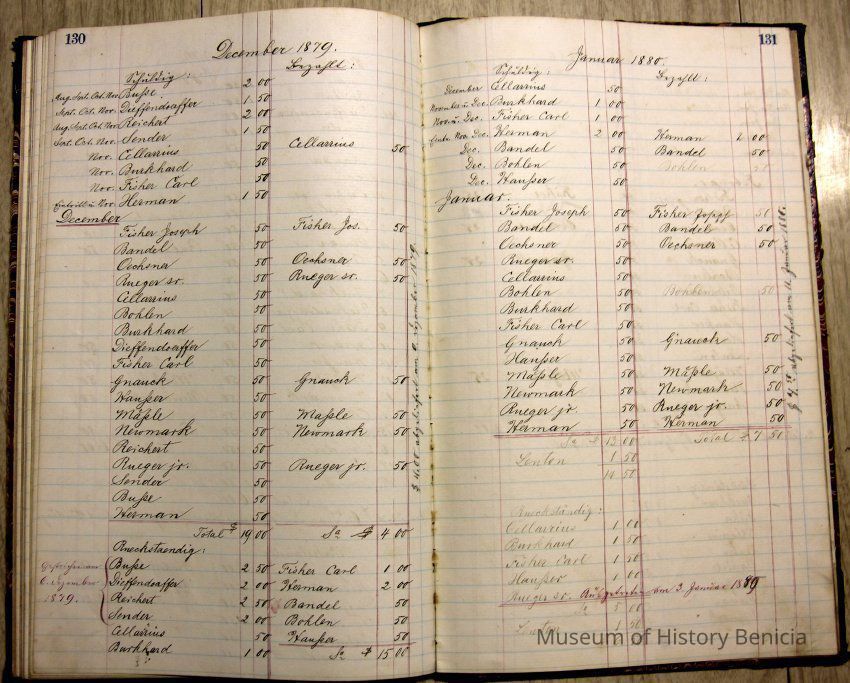 130
December 1879.
Schuldig: Bezahlt:
Aug. Sept. Oct. Nov. Buße 2 00
Sept. Oct. Nov. Dieffendoaffer 1 50
Aug. Sept. Oct. Nov. Reichert 2 00
Sept. Oct. Nov. Sender 1 50
Nov. Cellarrius 50 Cellarrius 50
Nov. Burkhard 50
Nov. Fisher Carl 50
Eintritt u Nov. Herman 1 50
December
Fisher Joseph 50 Fisher Jos. 50
Bandel 50
Oechsner 50 Oechsner 50
Rueger sr. 50 Rueger sr. 50
Cellarrius 50
Bohlen 50
Burkhard 50
Dieffendoaffer 50
Fisher Carl 50
Gnauck 50 Gnauck 50
Haußer 50
Maßle 50 Maßle 50
Newmark 50 Newmark 50
Reichert 50
Rueger jr. 50 Rueger jr. 50
Sender 50
Buße 50
Herman 50
Total $ 19 00 Sa $ 4 00
$ 4.00 abgeliefert am 6. Dezember 1879.
Rueckstaendig:
Gestrichen am 6. Dezember 1879.
Buße 2 50 Fisher Carl 1 00
Dieffendoaffer 2 00 Herman 2 00
Reichert 2 50 Bandel 50
Sender 2 00 Bohlen 50
Cellarrius 50 Haußer 50
Burkhard 1 00 Sa $ 15 00
131
Januar 1880.
Schuldig: Bezahlt:
December Cellarrius 50
November u. Dec. Burkhard 1 00
Nov. u. Dec. Fisher Carl 1 00
Eintr. Nov. Dec. Herman 2 00 Herman 2 00
Dec. Bandel 50 Bandel 50
Dec. Bohlen 50 Bohlen 50
Dec. Haußer 50
Januar.
Fisher Joseph 50 Fisher 50
Bandel 50 Bandel 50
Oechsner 50 Oechsner 50
Rueger sr. 50
Cellarrius 50
Bohlen 50 Bohlen 50
Burkhard 50
Fisher Carl 50
Gnauck 50 Gnauck 50
Haußer 50
Maßle 50 Maßle 50
Newmark 50 Newmark 50
Rueger jr. 50 Rueger jr. 50
Herman 50 Herman 50
Sa $ 13 00 Total $ 7 50
abgeliefert am Januar 1880.
London 1 50
14 50
Rueckständig:
Cellarrius 1 00
Burkhard 1 50
Fisher Carl 1 50
Haußer 1 00
Rueger sr. am 3 Januar 1889
Sa 5 00
London 1 50
Museum of History Benicia